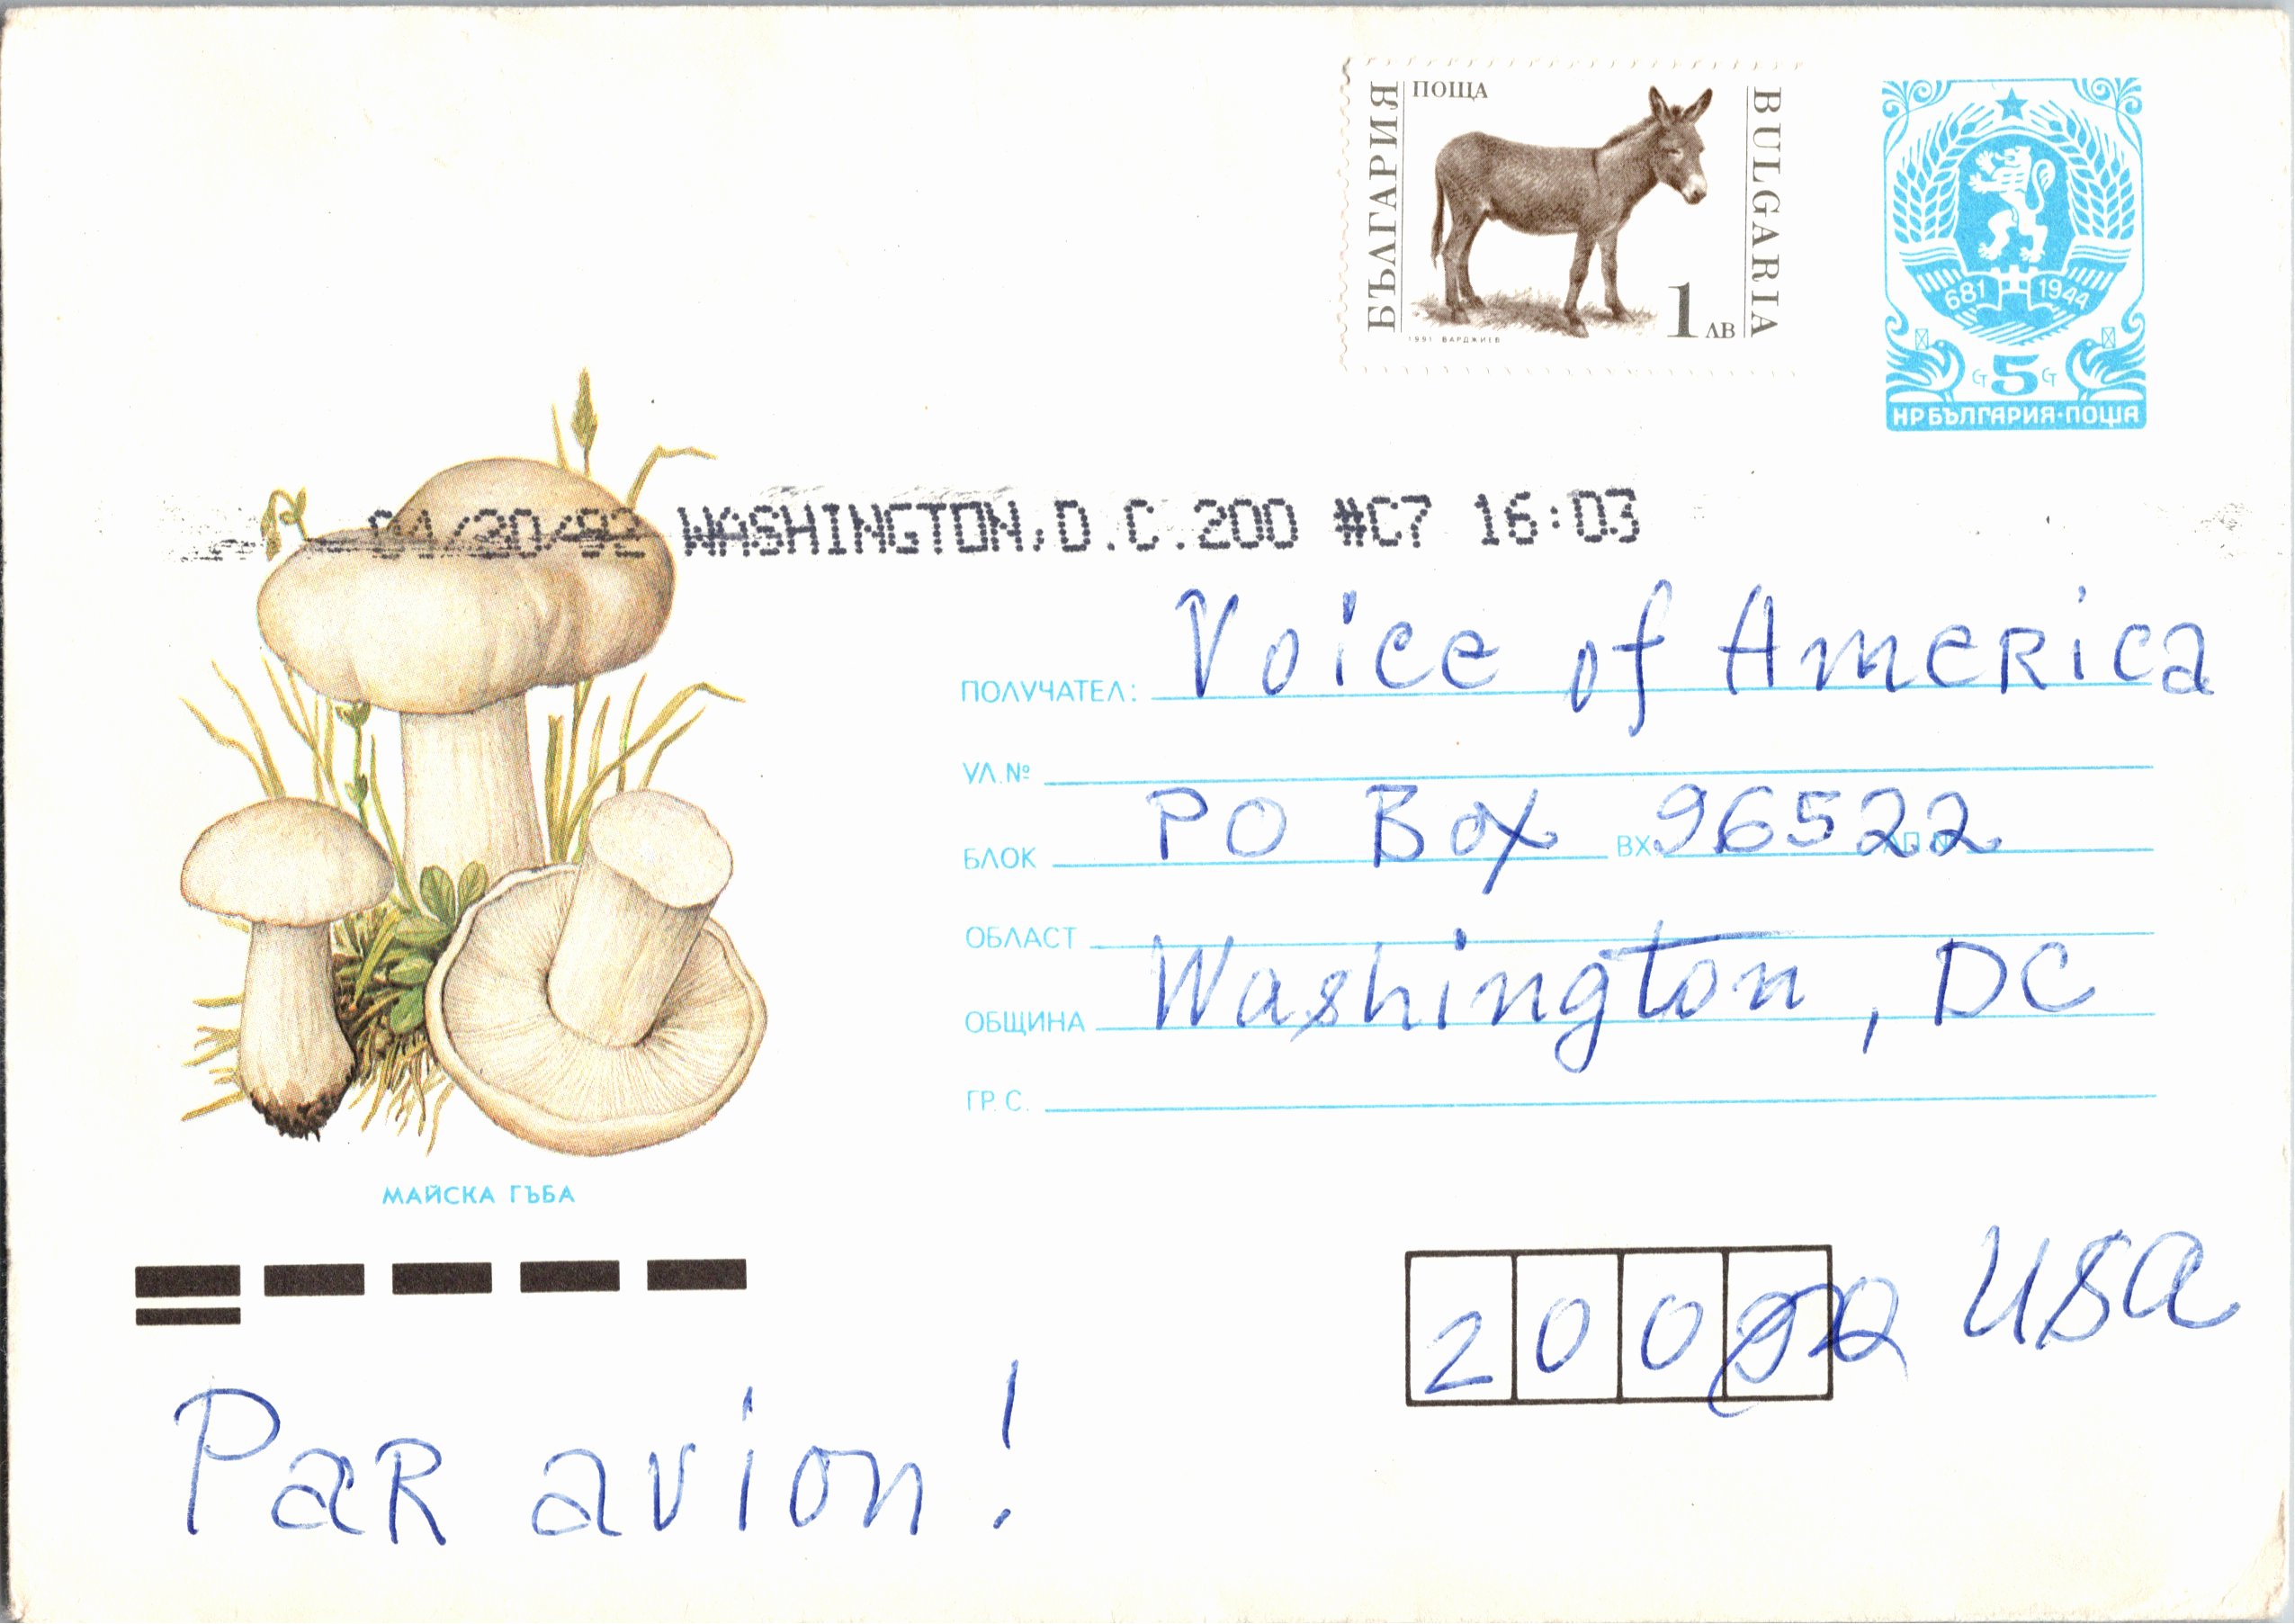 БЪЛГАРИЯ
ПОЩА
BULGARIA
1 ЛВ
1991 ВАРДЖИЕВ
681 1944
СТ 5 СТ
НР БЪЛГАРИЯ·ПОЩА
WASHINGTON, D.C. 200 #C7 16:03
ПОЛУЧАТЕЛ: Voice of America
УЛ. №
БЛОК PO Box ВХ. 96522 АП. №
ОБЛАСТ
ОБЩИНА Washington, DC
ГР. С.
МАЙСКА ГЪБА
USA
Par avion!